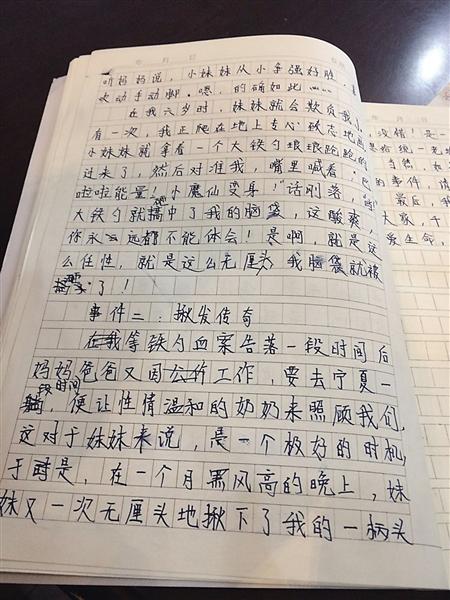 听妈妈说，小妹妹从小争强好胜，喜
欢动手动脚。嗯，的确如此……
在我六岁时，妹妹就会欺负我了
有一次，我正爬在地上专心致志地画
小妹妹就拿着一个大铁勺踉踉跑跑的
过来了，然后对准我，嘴里喊着：巴
啦啦能量！小魔仙变身！"话刚落，
大铁勺就击中了我的脑袋，这酸爽，
你永远都不能体会！是啊，就是这
么任性，就是这么无厘头，我脑袋就被
了！
事件二：揪发传奇
在我等铁勺血案告落一段时间后
妈妈爸爸又因工作，要去宁夏一
段时间，便让性情温和的奶奶来照顾我们，
这对于妹妹来说，是一个极好的时机，
于是，在一个月黑风高的晚上，妹
妹又一次无厘头地揪下了我的一柄头
没错！是一
当然，如
的事件，
最后，我
大家，千
爱生命，